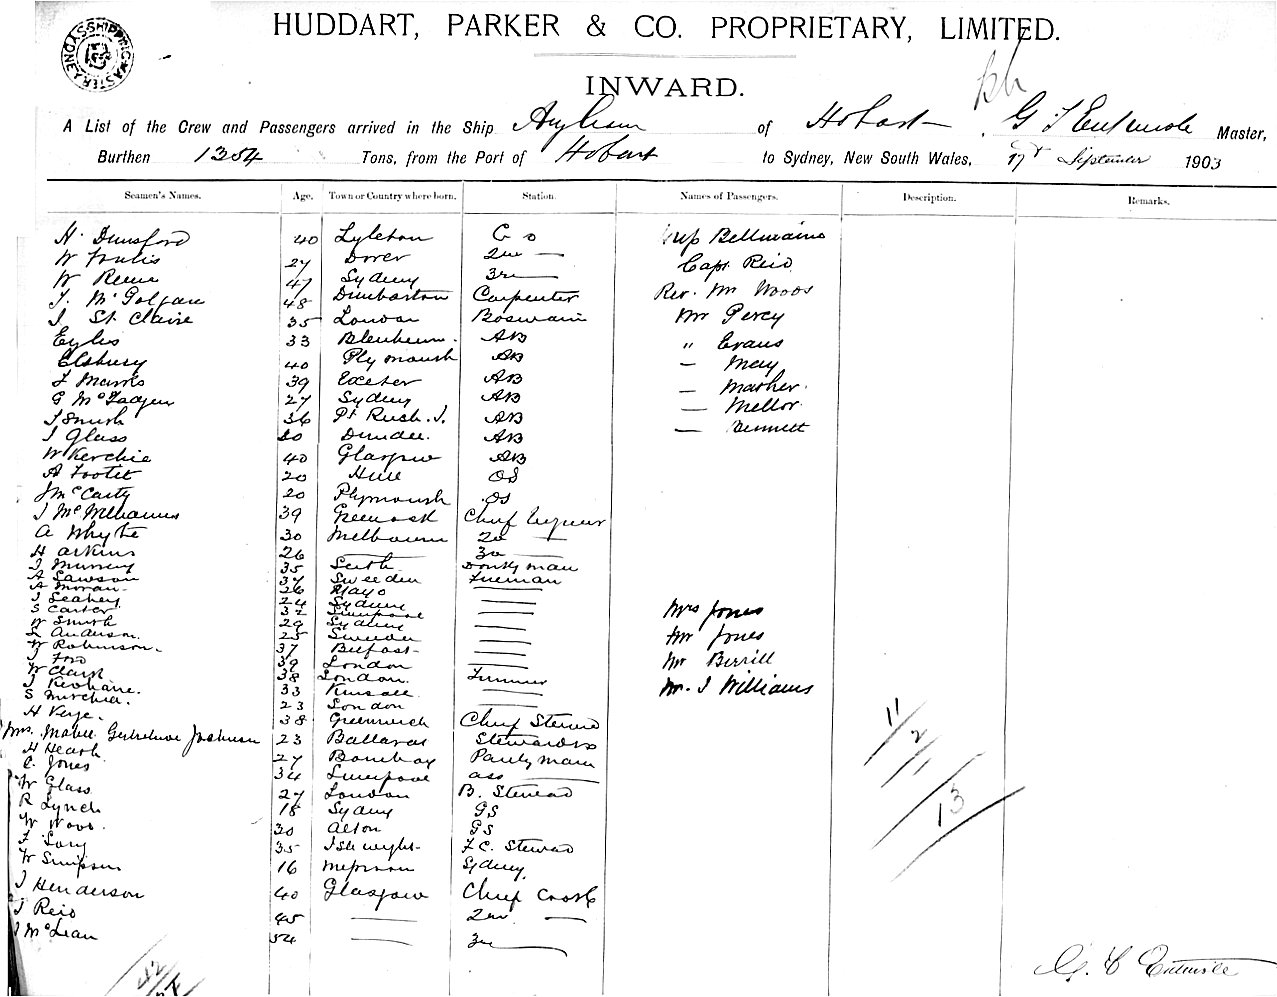 SYDNEY SHIPPING MASTER
HUDDART, PARKER & CO. PROPRIETARY, LIMITED.
INWARD.
A List of the Crew and Passengers arrived in the Ship of Hobart G Master,
Burthen 1354 Tons, from the Port of Hobart to Sydney, New South Wales, 17 September 1903
Seamen's Names. Age. Town or Country where born. Station. Names of Passengers. Description. Remarks.
H. Dunsford 40 Lyleton C o
W 27 Dover 2nd — Capt Reid
W 47 Sydney 3rd — Rev. Mr Woods
J. 48 Dumbarton Carpenter Mr Percy
J St Claire 35 London Boswain " Evans
Eyles 33 Blenheim. AB — May
Elsbury 40 Plymouth AB — Mather.
J Marris 39 Exeter AB — Mellor
G McFadyen 27 Sydney AB — Bennett
J Smith 36 Pt Rush. I. AB
J Glass 20 Dundee. AB
W Kerchie 40 Glasgow AB
A Footit 20 Hull OS
J McCarty 20 Plymouth OS
J McWilliams 39 Greenock Chief
A Whyte 30 Melbourne 2nd —
H Atkins 26 — 3rd —
J Murray 35 Leith Donkyman
A Lawson 37 Sweeden Fireman
A Moran 26 Mayo —
J Leahey 24 Sydney —
S Carter 32 Liverpool — Mrs Jones
W Smith 29 Sydney —
L Anderson. 25 Sweden — Mr Jones
W Robinson. 37 Belfast —
J Ford 39 London — Mr Berrill
W Clark 38 London. Trimmer
J Keohane. 33 Kinsale — Mr. J Williams
S 23 London —
H Keye. 38 Greenwich Chief Steward
Mrs. Mabel Gertrude Jackman 23 Ballarat Stewardess
H Heath 27 Bombay Pantryman
C. Jones 34 Liverpool ass —
W Glass 27 London B. Steward
R Lynch 18 Sydney GS
W Wood. 20 Alton GS
F 35 Isle wight F.C. Steward
W Simpson 16 Sydney.
J Henderson 40 Glasgow Chief Cook
J Reid 45 — 2nd —
J McLean 54 — 3rd —
11
2
11
13
52
G. C Entwisle